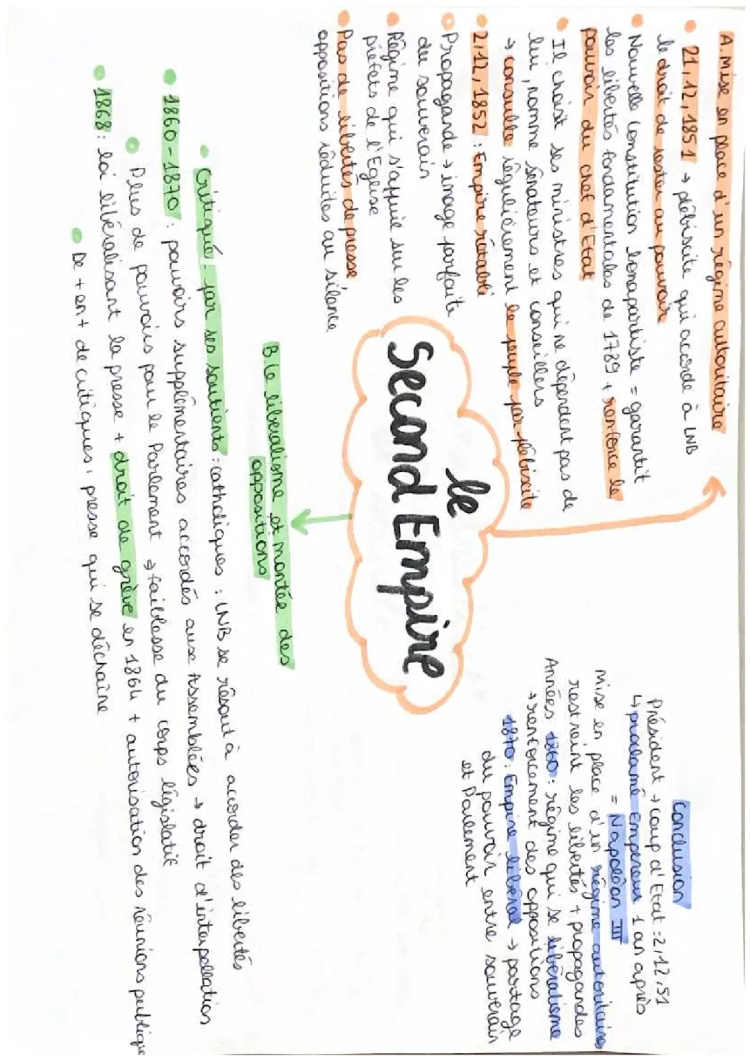 A. Mise en place d'un régime autoritaire
21/12/1851 → plébiscite qui accorde à LNB
le droit de rester au pouvoir
Nouvelle Constitution bonapartiste = garantit
les libertés fondamentales de 1789 + renforce le
pouvoir du chef d'Etat
Il choisit ses ministres qui ne dépendent pas de
lui, nomme sénateurs et conseillers
→ consulte régulièrement le peuple par plébiscite
2/12/1852 : Empire rétabli
Propagande → image parfaite
du souverain
Régime qui s'appuie sur les
préfets de l'Eglise
Pas de libertés de presse
oppositions réduites au silence
le
Second Empire
Conclusion
Président → coup d'Etat : 2/12/51
↳ proclamé empereur 1 an après
= Napoléon III
Mise en place d'un régime autoritaire
restreint les libertés + propagandes
Années 1860 : régime qui se libéralisme
→ renforcement des oppositions
1870 : Empire libéral → partage
du pouvoir entre souverain
et Parlement
B le libéralisme et montée des
oppositions
Critiqué par ses soutients : catholiques : LNB se résout à accorder des libertés
1860-1870 : pouvoirs supplémentaires accordés aux Assemblées → droit d'interpellation
Plus de pouvoirs pour le Parlement → faiblesse du corps législatif
1868 : loi libéralisant la presse + droit de grève en 1864 + autorisation des réunions publique
De + en + de critiques : presse qui se déchaîne